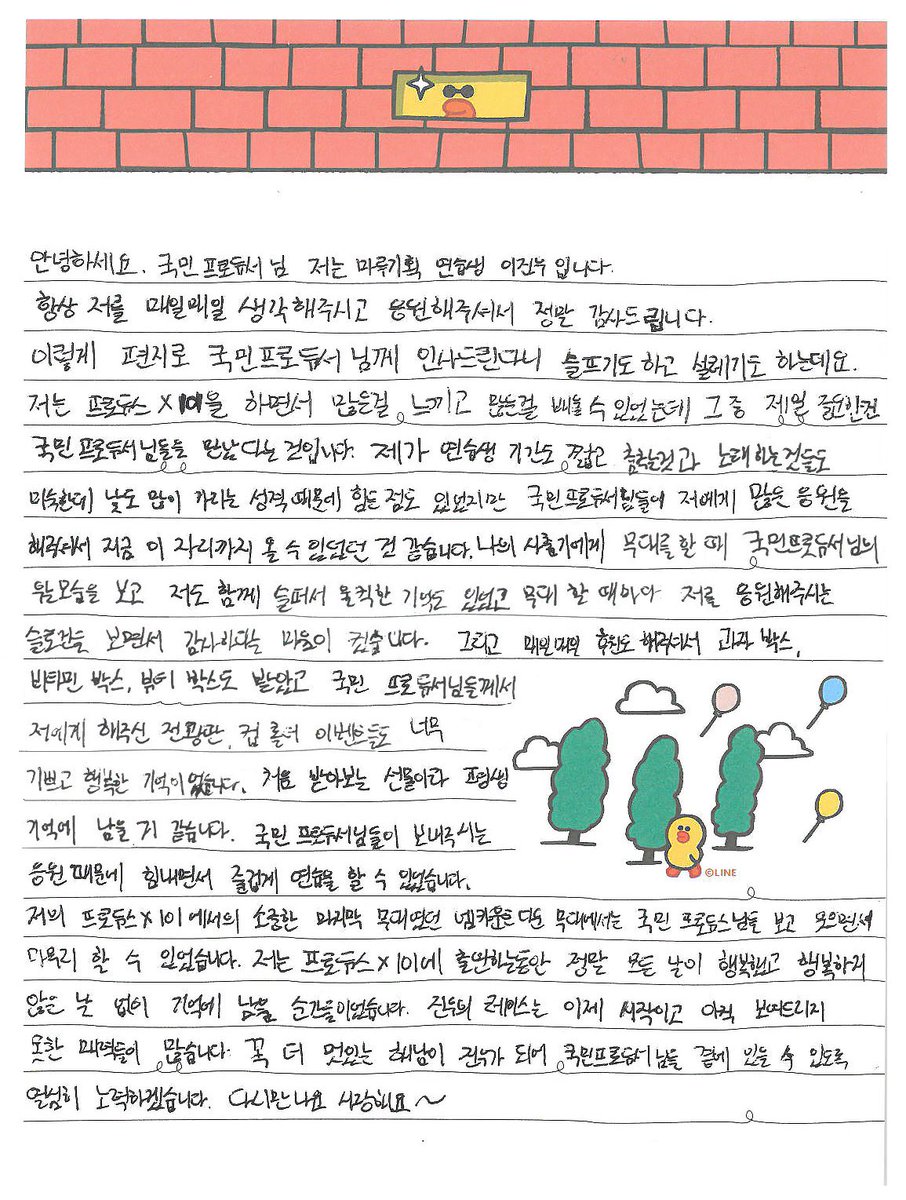 안녕하세요. 국민 프로듀서 님 저는 마루기획 연습생 이진우 입니다.
항상 저를 매일매일 생각해주시고 응원해주셔서 정말 감사드립니다.
이렇게 편지로 국민프로듀서 님께 인사드린다니 슬프기도 하고 설레기도 하는데요.
저는 프로듀스 X 101을 하면서 많은걸 느끼고 많은걸 배울 수 있었는데 그 중 제일
국민프로듀서님들을 만났다는 것입니다. 제가 연습생 기간도 짧고 춤추는것과 노래하는것들도
미숙한데 낯도 많이 가리는 성격때문에 힘든점도 있었지만 국민프로듀서님들이 저에게 많은 응원을
해주셔서 지금 이 자리까지 올 수 있었던 것 같습니다. 나의 사춘기에게 무대를 할 때 국민프로듀서님의
우는모습을 보고 저도 함께 슬퍼서 울컥한 기억도 있었고 무대 할 때마다 저를 응원해주시는
슬로건을 보면서 감사하다는 마음이 컸습니다. 그리고 매일매일 후원도 해주셔서 과자 박스,
비타민 박스, 뷰티 박스도 받았고 국민 프로듀서님들께서
저에게 해주신 전광판, 컵 홀더 이벤트들도 너무
기쁘고 행복한 기억이었습니다. 처음 받아보는 선물이라 평생
기억에 남을 거 같습니다. 국민 프로듀서님들이 보내주시는
응원 때문에 힘내면서 즐겁게 연습을 할 수 있었습니다.
저의 프로듀스 X 101 에서의 소중한 마지막 무대였던 넘나쁜 무대에서는 국민 프로듀스님을 보고 웃으면서
마무리 할 수 있었습니다. 저는 프로듀스 X 101에 출연하는동안 정말 모든 날이 행복했고 행복하지
않은 날 없이 기억에 남을 순간들이었습니다. 진우의 케이스는 이제 시작이고 아직 보여드리지
못한 매력들이 많습니다. 꼭 더 멋있는 해남이 진우가 되어 국민프로듀서님들 곁에 있을 수 있도록
열심히 노력하겠습니다. 다시만나요 사랑해요~
©LINE